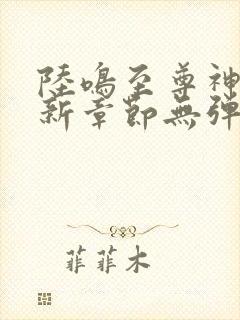 陸鳴至尊神
新章節無彈
菲菲木